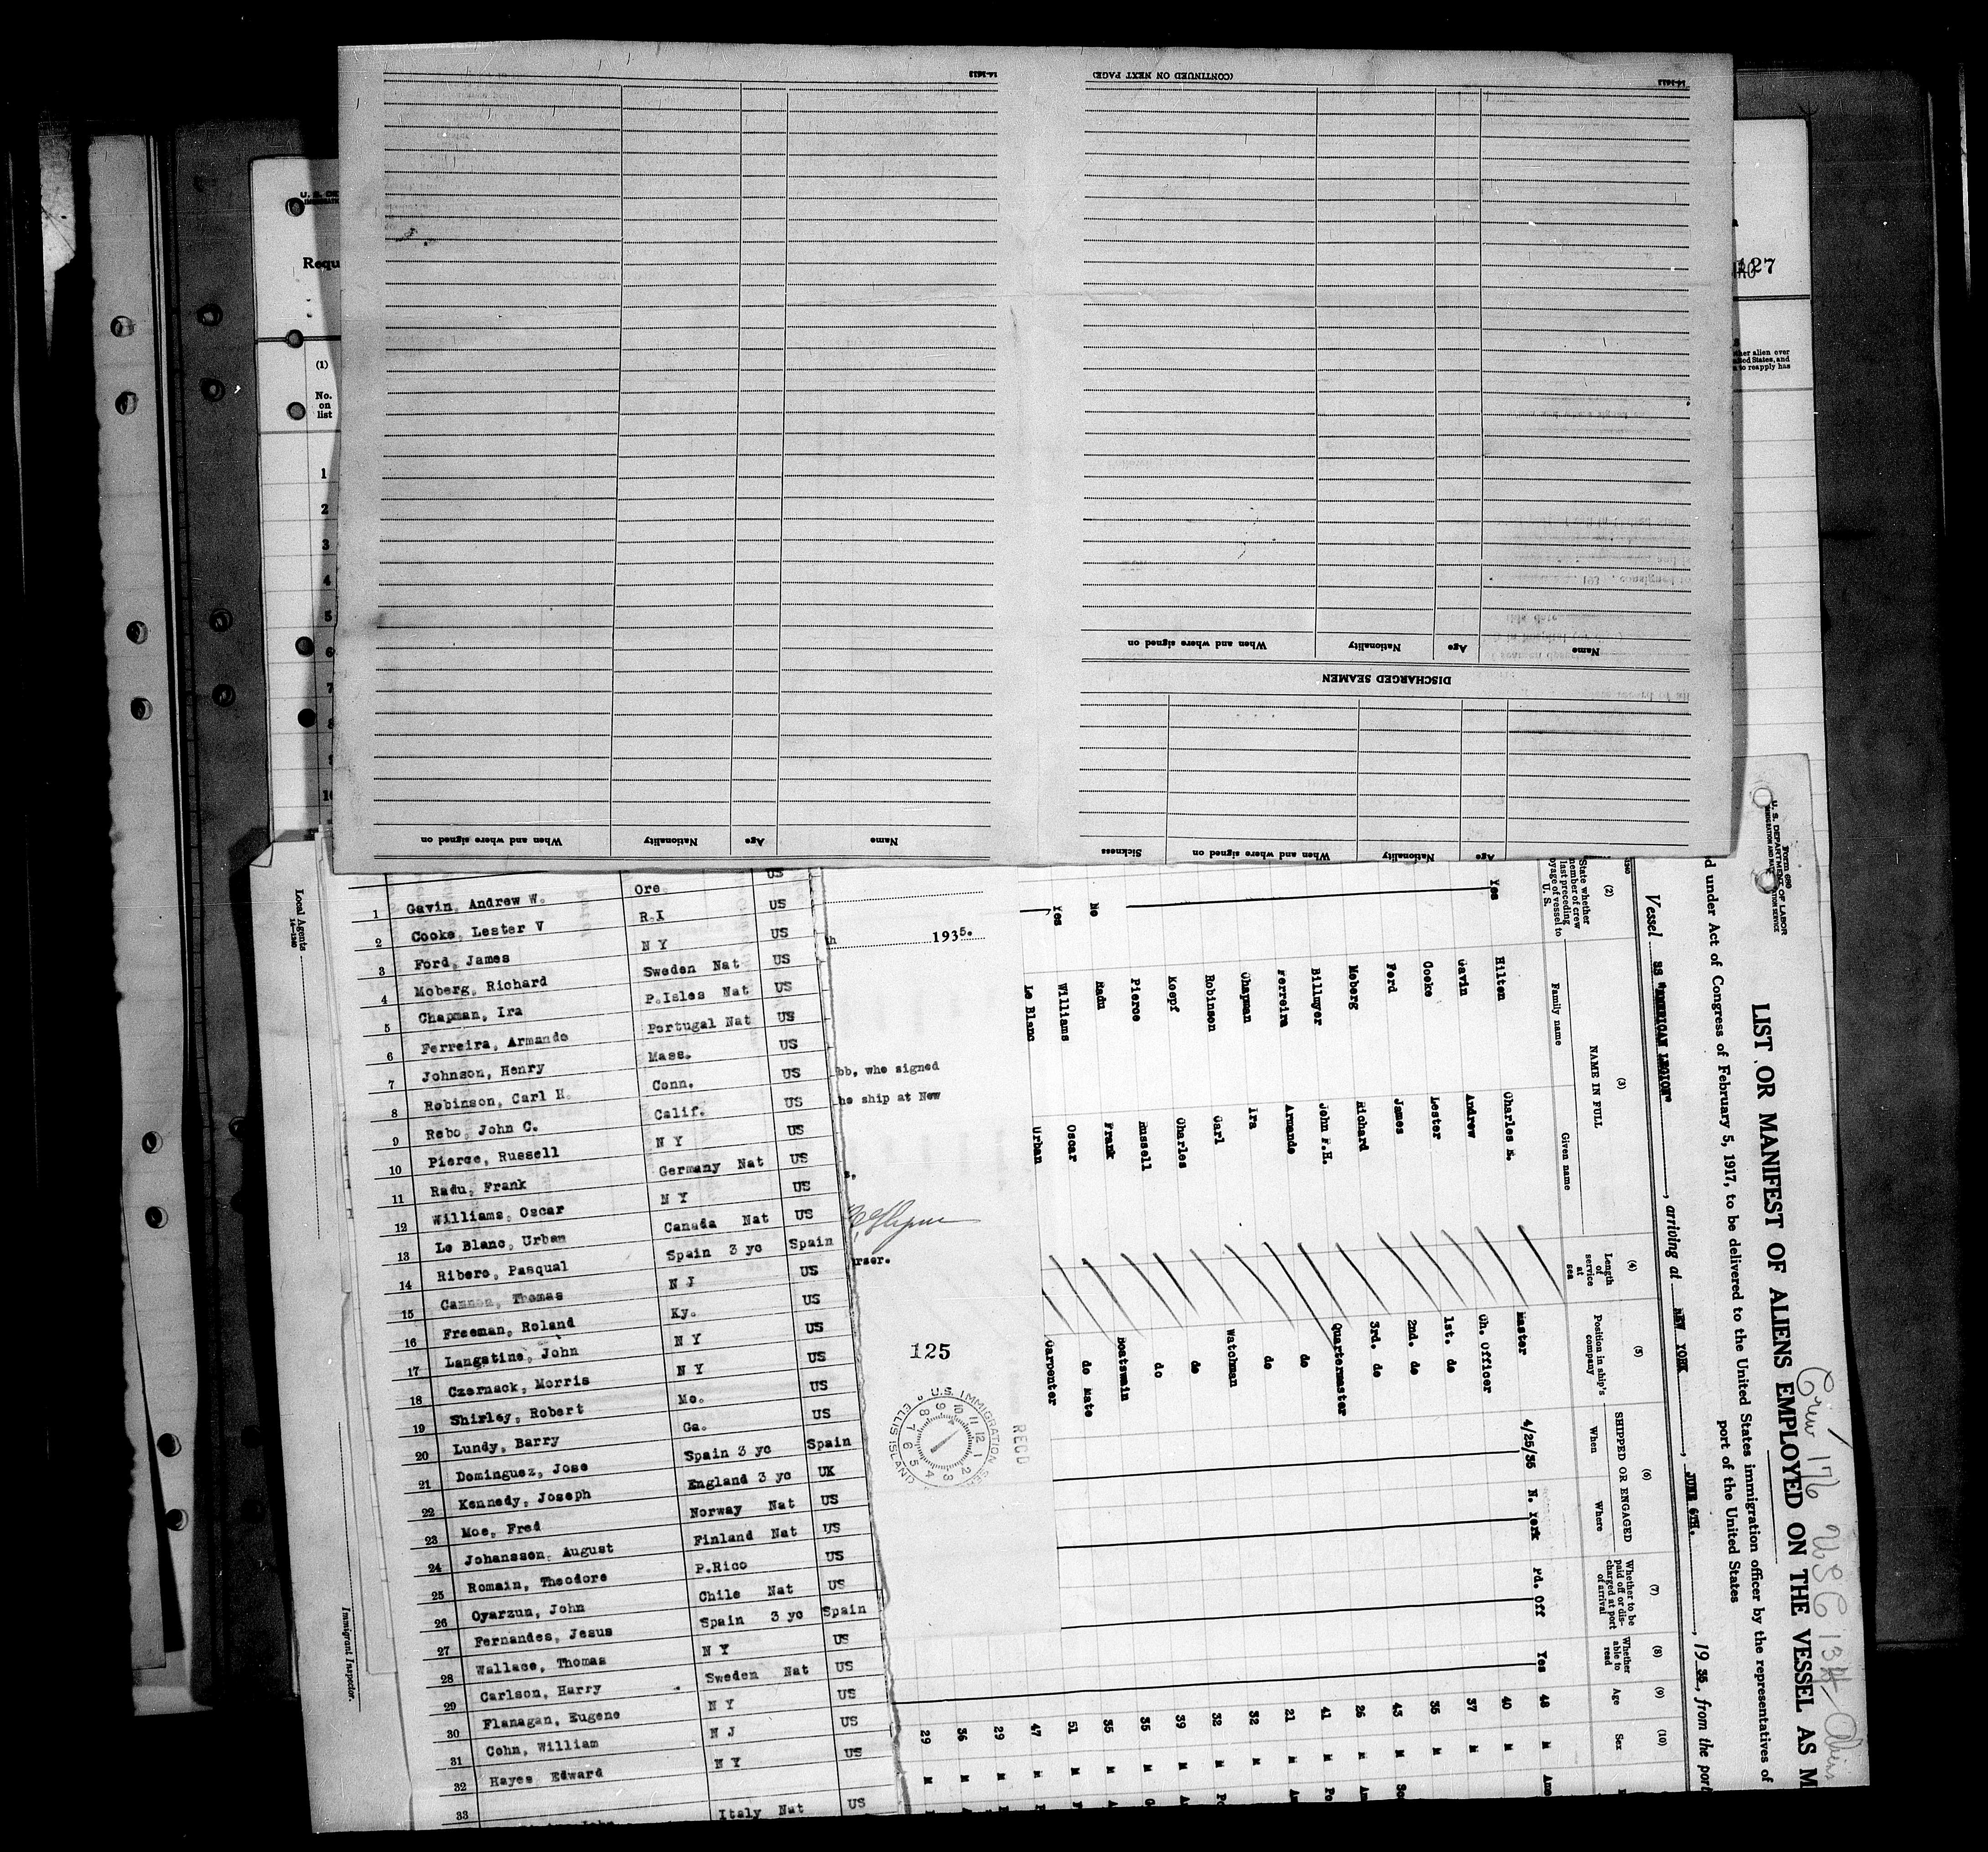 14-1613
(CONTINUED ON NEXT PAGE)
14-1613
Name
Age
Nationality
When and where signed on
DISCHARGED SEAMEN
Age
Nationality
When and where signed on
Sickness
Name
Age
Nationality
When and where signed on
Requ
(1)
No.
on
list
1
2
3
4
5
6
7
8
127
ther alien over
to reapply has
Local Agents
14-1240
Immigrant Inspector.
US
1 Gavin, Andrew W. Ore US
2 Cooke, Lester V R.I US
3 Ford, James N Y US
4 Moberg, Richard Sweden Nat US
5 Chapman, Ira P.Isles Nat US
6 Ferreira, Armando Portugal Nat US
7 Johnson, Henry Mass. US
8 Robinson, Carl H. Conn. US
9 Rebo, John C. Calif. US
10 Pierce, Russell N Y US
11 Radu, Frank Germany Nat US
12 Williams, Oscar N Y US
13 Le Blanc, Urban Canada Nat US
14 Ribero, Pasqual Spain 3 yc Spain
15 Cannon, Thomas N J US
16 Freeman, Roland Ky. US
17 Langstine, John N Y US
18 Czernack, Morris N Y US
19 Shirley, Robert Mo. US
20 Lundy, Barry Ga. US
21 Dominguez, Jose Spain 3 yc Spain
22 Kennedy, Joseph England 3 yc UK
23 Moe, Fred Norway Nat US
24 Johansson, August Finland Nat US
25 Romain, Theodore P.Rico US
26 Oyarzun, John Chile Nat US
27 Fernandes, Jesus Spain 3 yc Spain
28 Wallace, Thomas N Y US
29 Carlson, Harry Sweden Nat US
30 Flanagan, Eugene N Y US
31 Cohn, William N J US
32 Hayes Edward N Y US
33 Italy Nat US
1935.
bb, who signed
he ship at New
rser.
125
U.S. IMMIGRATION SER
ELLIS ISLAND
REC'D
Form 680
U. S. DEPARTMENT OF LABOR
Crew 176
LIST OR MANIFEST OF ALIENS EMPLOYED ON THE VESSEL AS M
d under Act of Congress of February 5, 1917, to be delivered to the United States immigration officer by the representatives of
port of the United States
Vessel SS "AMERICAN LEGION", arriving at NEW YORK, JUNE 6TH., 1935, from the port
(2)
State whether
member of crew
last preceding
voyage of vessel to
U. S.
(3)
NAME IN FULL
Family name
Given name
(4)
Length
of
service
at
sea
(5)
Position in ship's
company
(6)
SHIPPED OR ENGAGED
When
Where
(7)
Whether to be
paid off or dis-
charged at port
of arrival
(8)
Whether
able to
read
(9)
Age
(10)
Sex
Yes Hilton Charles E. Master 4/25/35 N. York Pd. Off Yes 48 M Ame
Gavin Andrew Ch. Officer 40 M
Cooke Lester 1st. do 37 M
Ford James 2nd. do 35 M
Moberg Richard 3rd. do 43 M Sc
Billmyer John F.H. Quartermaster 26 M Am
Ferreira Armando do 41 M Po
Chapman Ira do 21 M Am
Robinson Carl Watchman 32 M
Koepf Charles do 32 M Po
Pierce Russell do 39 M
No Radu Frank Boatswain 35 M
Yes Williams Oscar do Mate 35 M
Le Blanc Urban Carpenter 51 M
47 M
29 M
36 M
29 M